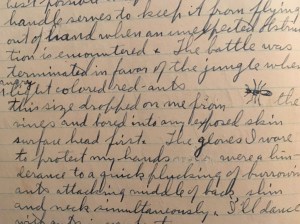 handle serves to keep it from flying
out of hand when an unexpected obstruc-
tion is encountered. The battle was
terminated in favor of the jungle when
light colored red-ants
this size dropped on me from the
vines and bored into any exposed skin
surface head first. The gloves I wore
to protect my hands were a hin-
derance to a quick plucking of burrowing
ants attacking middle of back skin
and neck simultaneously. I'll